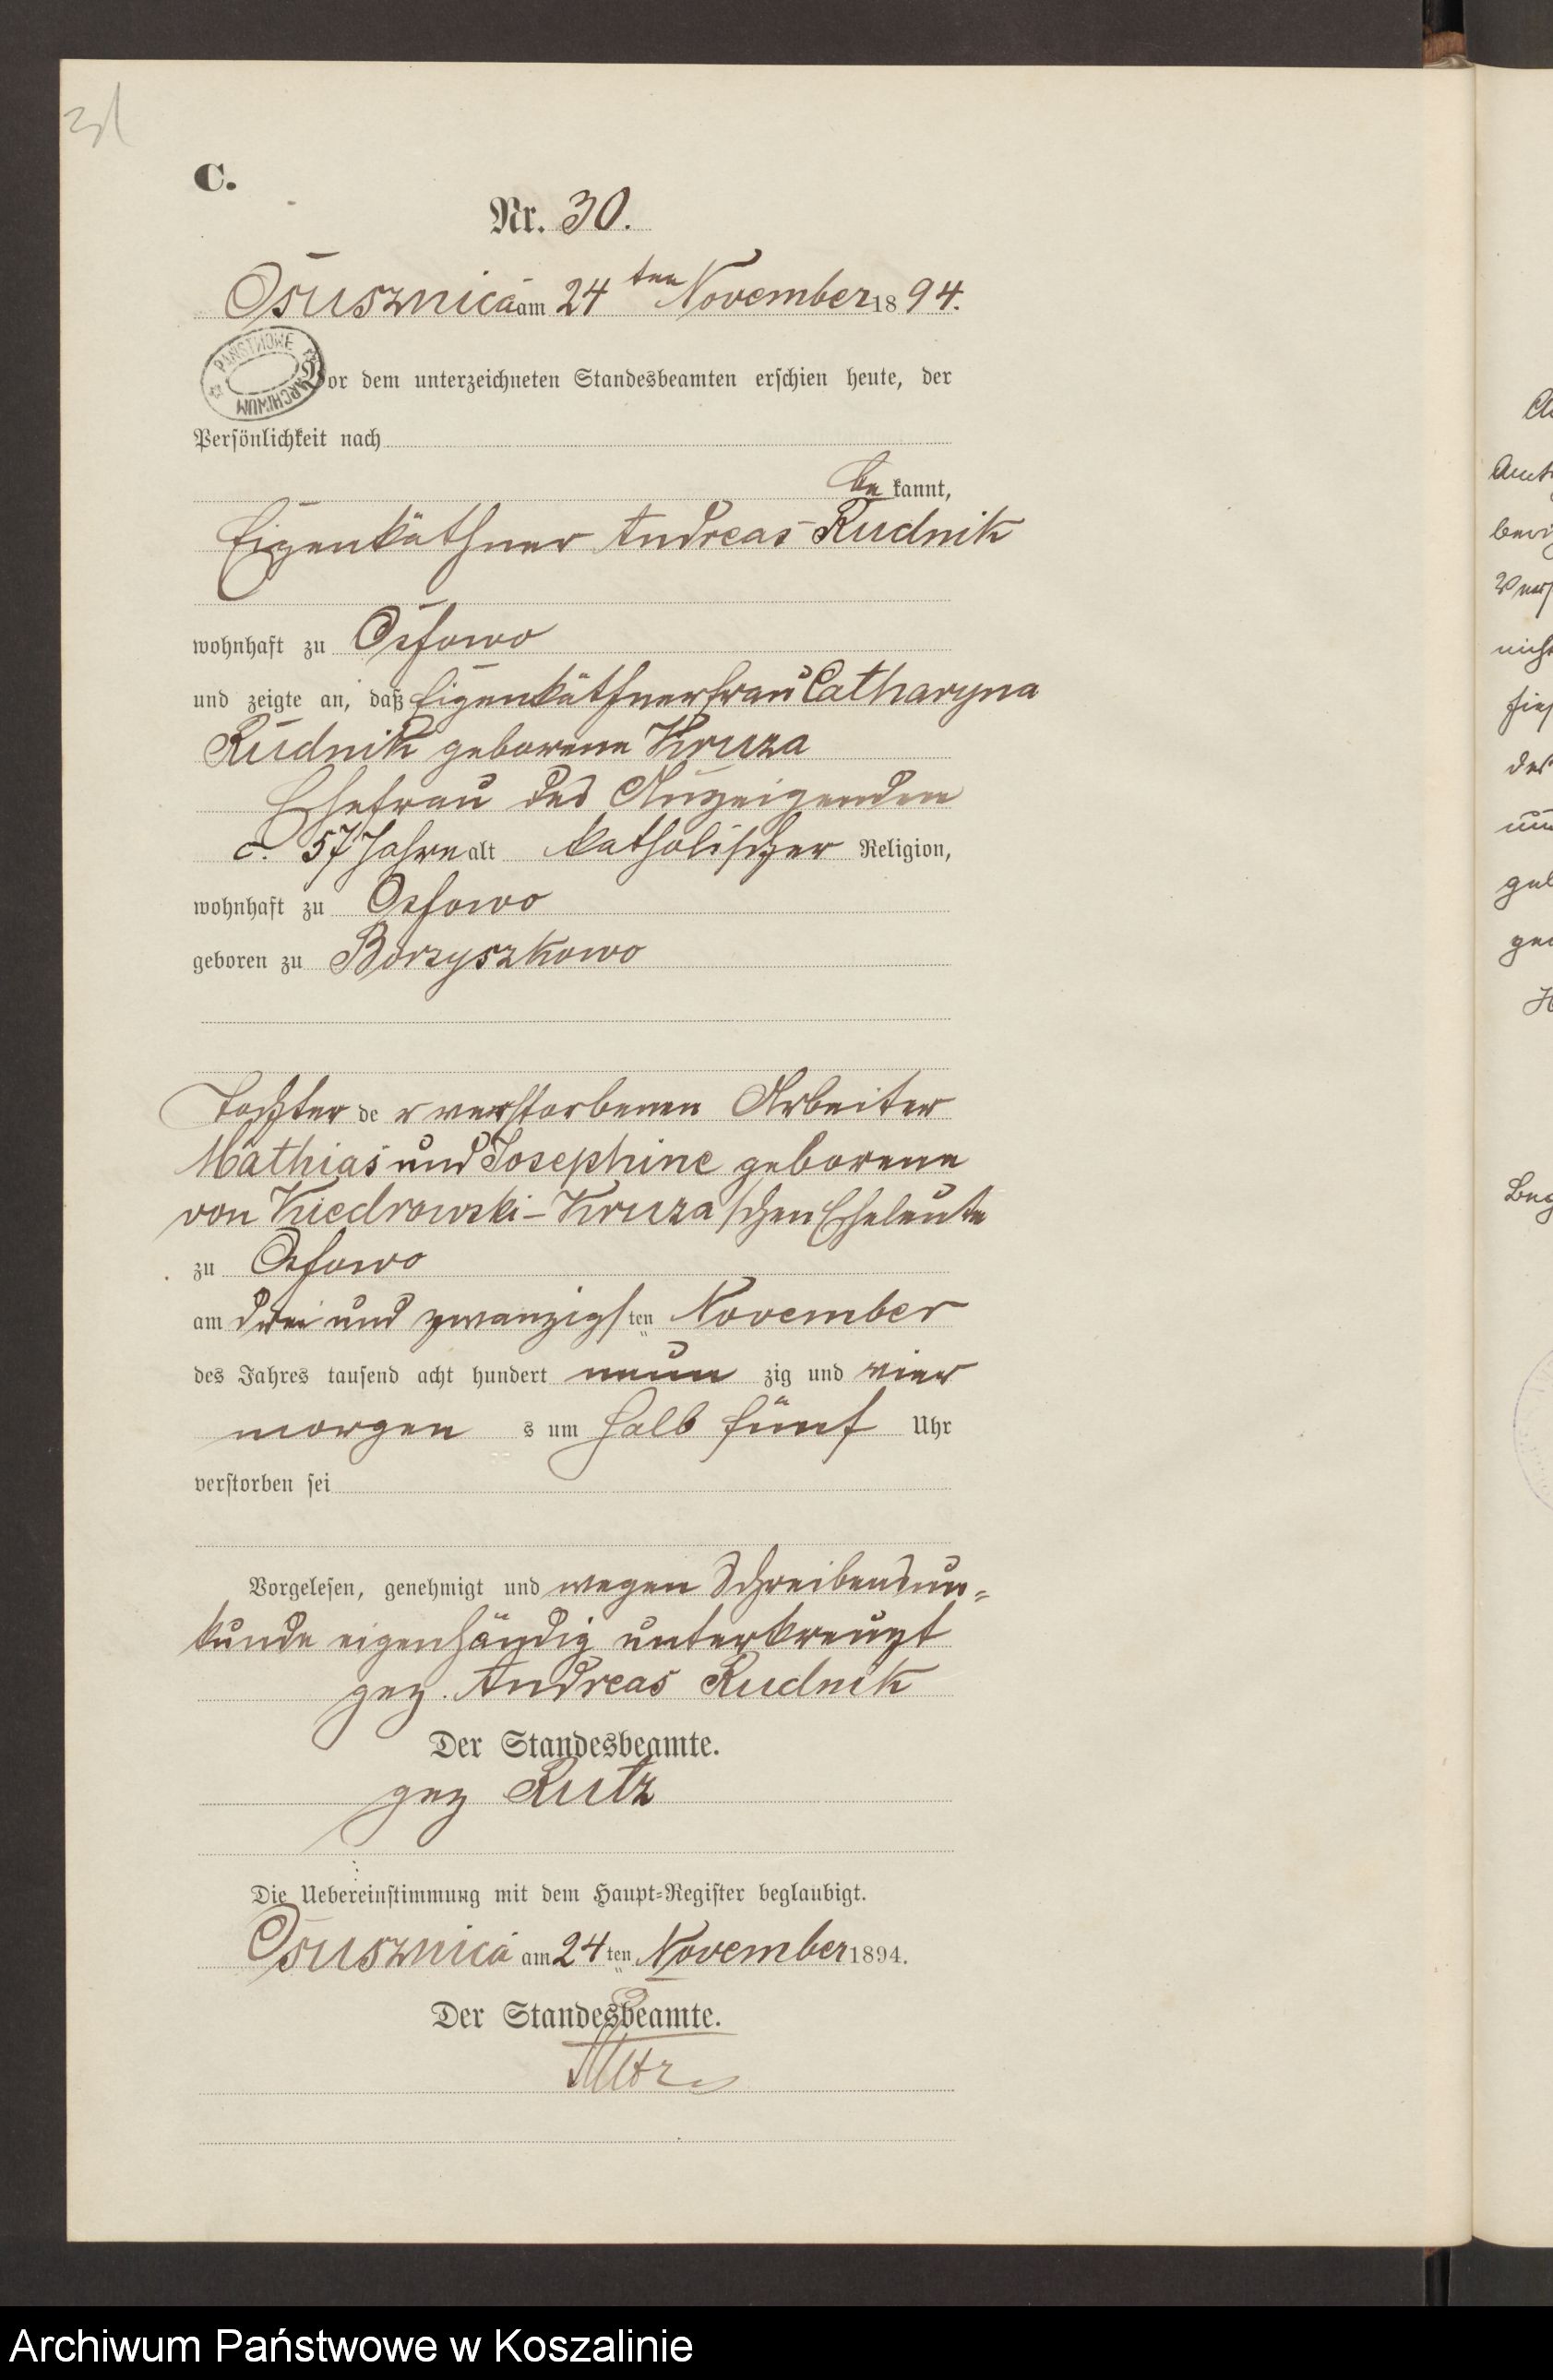 31
C.
Nr. 30.
Osusznica am 24ten November 1894.
PAŃSTWOWE ARCHIWUM
Vor dem unterzeichneten Standesbeamten erschien heute, der
Persönlichkeit nach
be kannt,
Eigenkäthner Andreas Rudnik
wohnhaft zu Ossowo
und zeigte an, daß Eigenkäthnerfrau Catharyna
Rudnik geborene Kruza
Ehefrau des Anzeigenden
c. 57 Jahre alt katholischer Religion,
wohnhaft zu Ossowo
geboren zu Borzyszkowo
Tochter de r verstorbenen Arbeiter
Mathias und Josephine geborene
von Kiedrowski-Kruza'schen Eheleute
zu Ossowo
am drei und zwanzigs ten November
des Jahres tausend acht hundert neun zig und vier
morgen s um halb fünf Uhr
verstorben sei
Vorgelesen, genehmigt und wegen Schreibensun-
kunde eigenhändig unterkreuzt
gez. Andreas Rudnik
Der Standesbeamte.
gez Rutz
Die Uebereinstimmung mit dem Haupt-Register beglaubigt.
Osusznica am 24 ten November 1894.
Der Standesbeamte.
Rutz
Archiwum Państwowe w Koszalinie